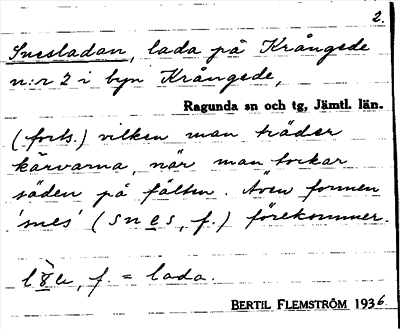 2.
Snesladan, lada på Krångede
n:r 2 i byn Krångede,
Ragunda sn och tg, Jämtl. län.
(forts.) vilken man träder
kärvarna, när man torkar
säden på fälten. Även formen
'snes' (snes, f.) förekommer.
f. = lada.
BERTIL FLEMSTRÖM 1936.